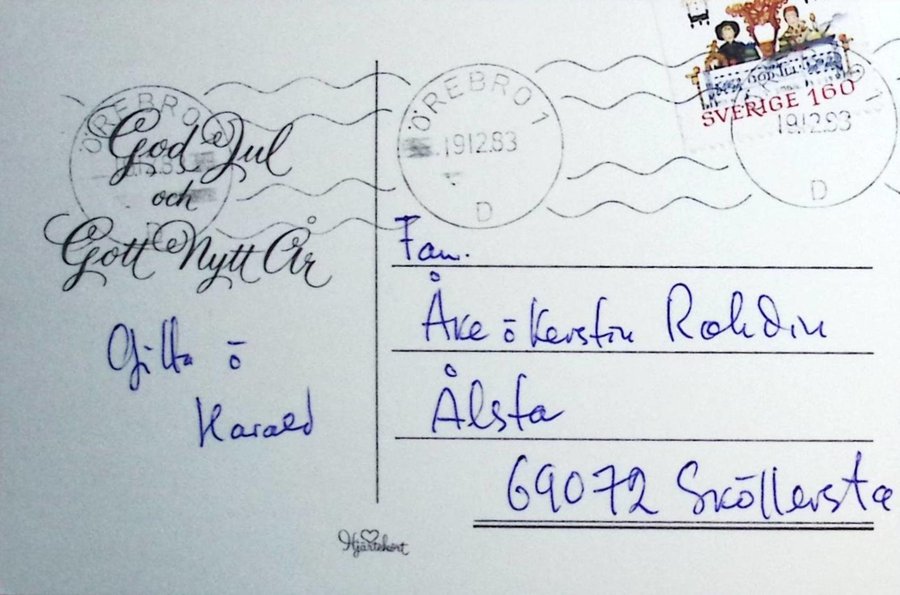 ÖREBRO 1
19.12.83
D
ÖREBRO 1
19.12.83
D
GOD JUL
SVERIGE 160
1
19.12.83
D
God Jul
och
Gott Nytt År
Gitta ö
Harald
Fam.
Åke ö Kerstin Rohdin
Ålsta
69072 Sköllersta
Hjärtekort